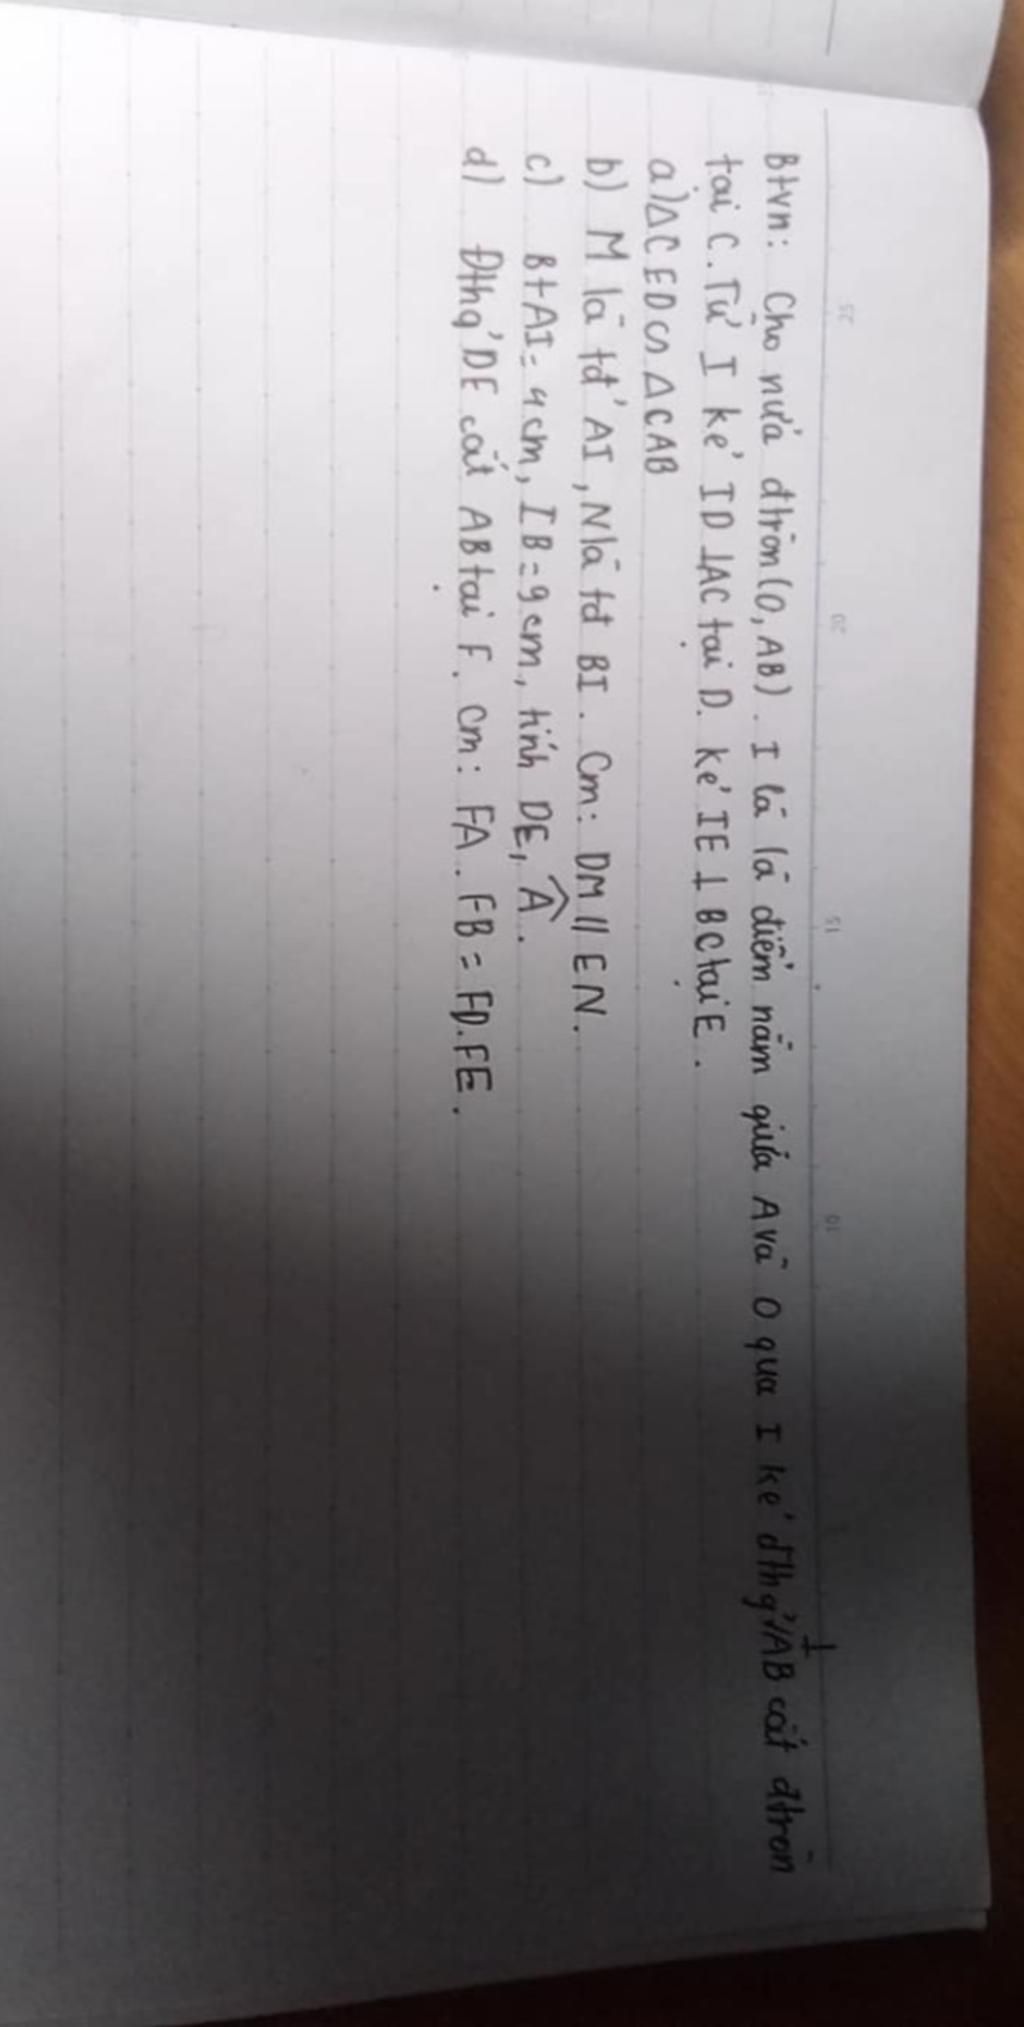 Btvn: Cho nửa đtròn (O, AB). I là là điểm nằm giữa A và O qua I kẻ đthg ⊥ AB cắt đtròn
tại C. Từ I kẻ ID ⊥ AC tại D. kẻ IE ⊥ BC tại E.
a) Δ CED ᔕ Δ CAB
b) M là tđ' AI, N là tđ BI. Cm: DM // EN.
c) Bt AI = 4cm, IB = 9cm, tính DE, Â.
d) Đthg' DE cắt AB tại F. Cm: FA. FB = FD.FE.
25
20
15
10